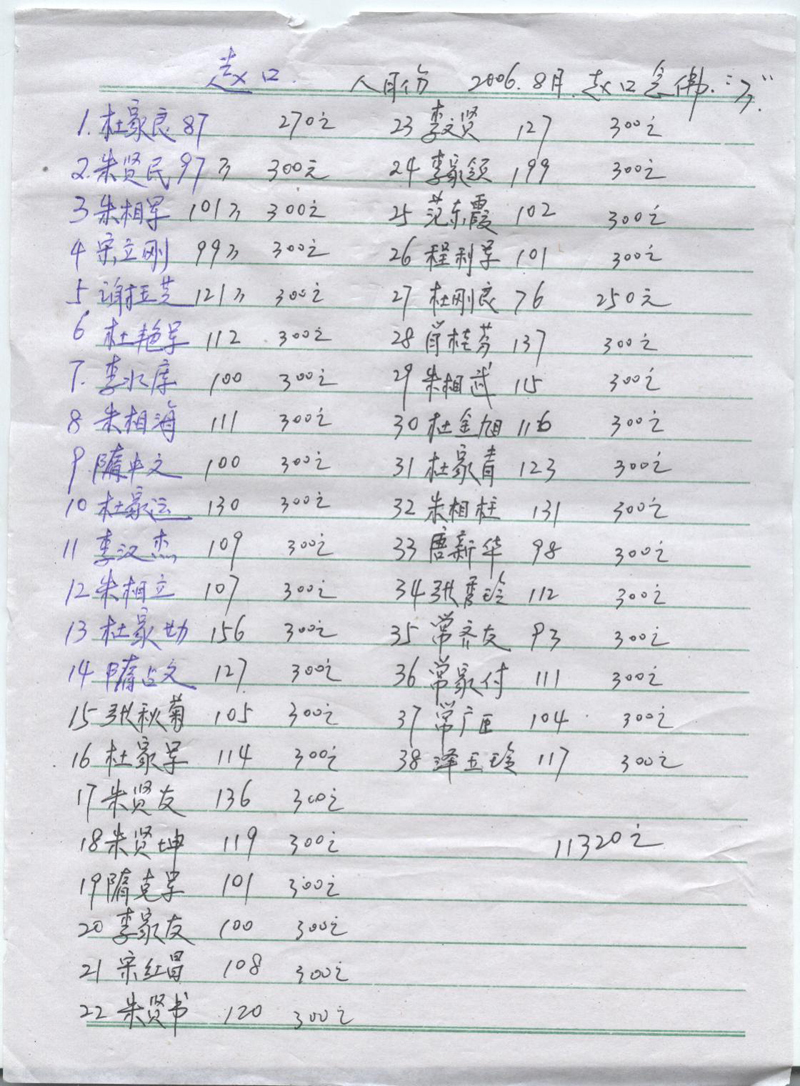 赵口.
人目份 2006.8月.赵口
1.杜家良 87 270元
2.朱贤民 97 300元
3 朱相军 101 300元
4 宋立刚 99 300元
5 谢桂芝 121 300元
6 杜艳军 112 300元
7.李水库 100 300元
8 朱相海 111 300元
9.隋中文 100 300元
10 杜家运 130 300元
11 李汉杰 109 300元
12 朱相立 107 300元
13 杜家勤 156 300元
14 隋占文 127 300元
15 张秋菊 105 300元
16 杜家军 114 300元
17 朱贤友 136 300元
18 朱贤坤 119 300元
19 隋克军 101 300元
20 李家友 100 300元
21 宋红昌 108 300元
22 朱贤书 120 300元
23 李文贤 127 300元
24 李家领 199 300元
25 范东霞 102 300元
26 程利军 101 300元
27 杜刚良 76 250元
28 肖桂芬 137 300元
29 朱相武 115 300元
30 杜金旭 116 300元
31 杜家青 123 300元
32 朱相柱 131 300元
33 唐新华 98 300元
34 张秀玲 112 300元
35 常齐友 93 300元
36 常家付 111 300元
37 常广臣 104 300元
38 玉玲 117 300元
11320元